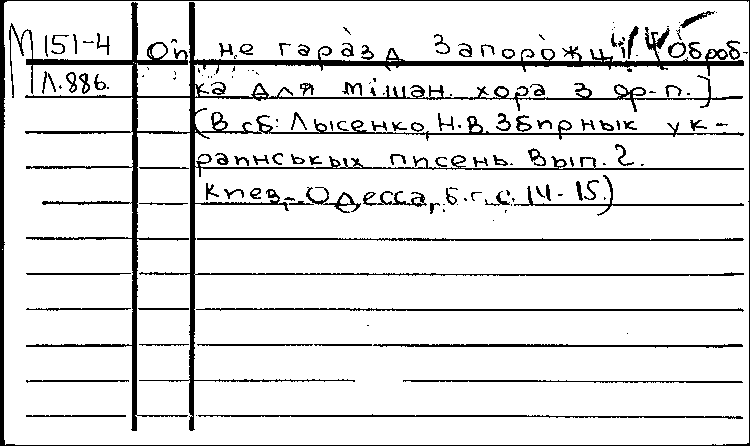 М 151-4 Ой, не гаразд Запорожци [Оброб-
Л.886. ка для мішан. хора з ф-п.]
(В сб: Лысенко, Н.В. Збирнык ук-
раинськых писень. Вып. 2.
Киев,-Одесса, б.г., с. 14-15.)